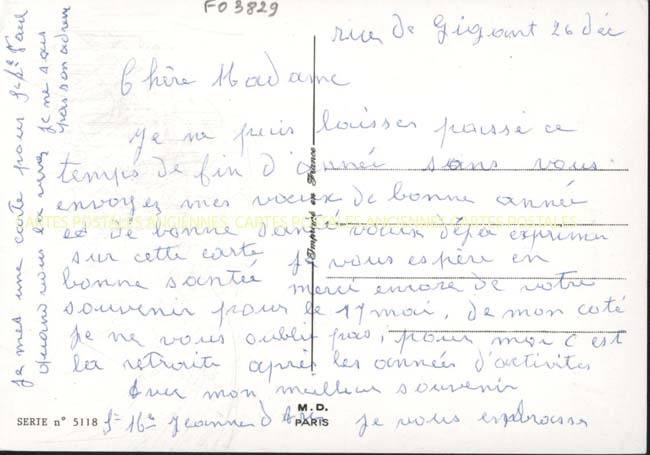 FO3829
de Gigant 26 déc
Chère Madame
Je ne puis laisser passé ce
temps de fin d'année sans vous
envoyez mes vœux de bonne année
et de bonne santé vœux déjà exprimer
sur cette carte je vous espère en
bonne santée merci encore de votre
souvenir pour le 17 mai, de mon coté
je ne vous oublie pas, pour moi c'est
la retraite après les années d'activites
Avec mon meilleur souvenir
Jeanne d'Arc je vous embrasse
Je mes une carte pour Sr St Paul
quand vous la
je ne sais
pas son adresse
Imprimé en France
SERIE n° 5118
M.D.
PARIS
CARTES POSTALES ANCIENNES CARTES POSTALES ANCIENNES CARTES POSTALES